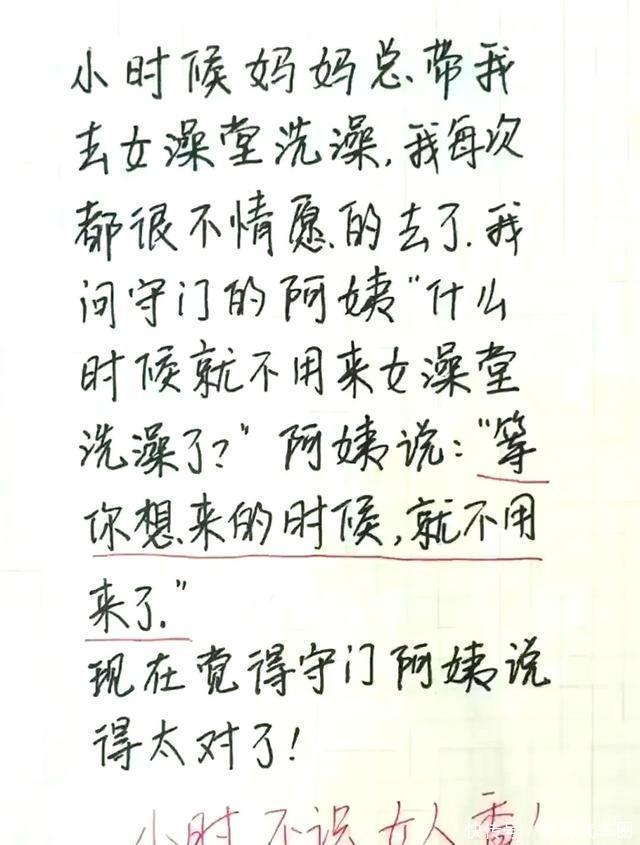 小时候妈妈总带我
去女澡堂洗澡,我每次
都很不情愿的去了.我
问守门的阿姨"什么
时候就不用来女澡堂
洗澡了?"阿姨说:"等
你想来的时候,就不用
来了."
现在觉得守门阿姨说
得太对了!
小时不识女人香!
快传号